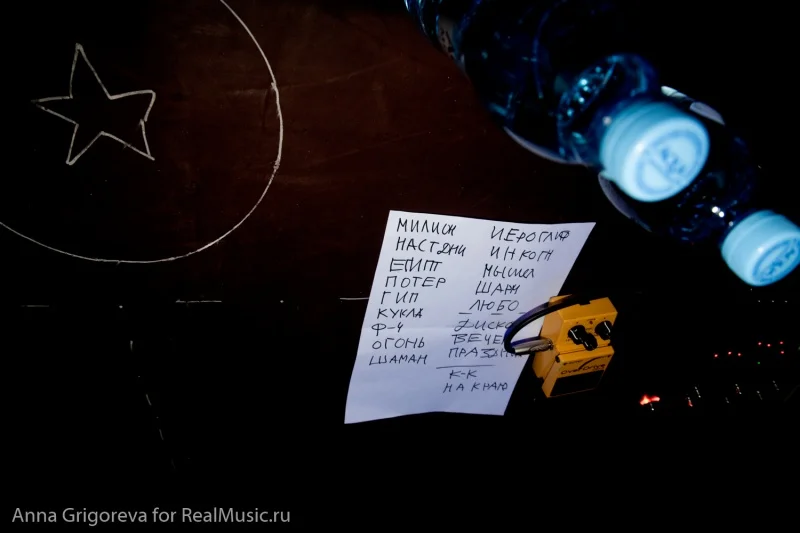 МИЛИОН
НАСТОЯЩ
ЕГИПТ
ПОТЕР
ГИП
КУКЛА
Ф-Ч
ОГОНЬ
ШАМАН
ИЕРОГЛИФ
ИНКОГН
МЫШЕЛ
ШАРИ
ЛЮБО
ДИСКО
ВЕЧЕ
ПРАЗДНИ
К-К
НА КНАЮ
Anna Grigoreva for RealMusic.ru